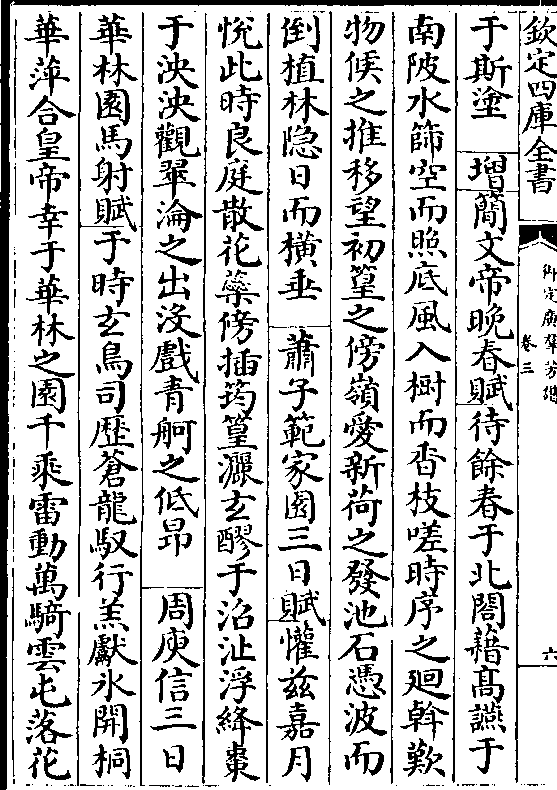 欽定四庫全書
御定廣羣芳譜
卷三
六
于斯塗 增簡文帝晩春賦待餘春于北閣藉髙讌于
南陂水篩空而照底風入樹而香枝嗟時序之廻斡歎
物候之推移望初篁之傍嶺愛新荷之發池石憑波而
倒植林隐日而横垂 蕭子範家園三日賦懽兹嘉月
恱此時良庭散花蘂傍插筠篁灑玄醪于沼沚浮絳棗
于泱泱觀翠淪之出没戲青舸之低昂 周庾信三日
華林園馬射賦于時玄鳥司歴蒼龍馭行羔獻氷開桐
華萍合皇帝幸于華林之園千乘雷動萬騎雲屯落花